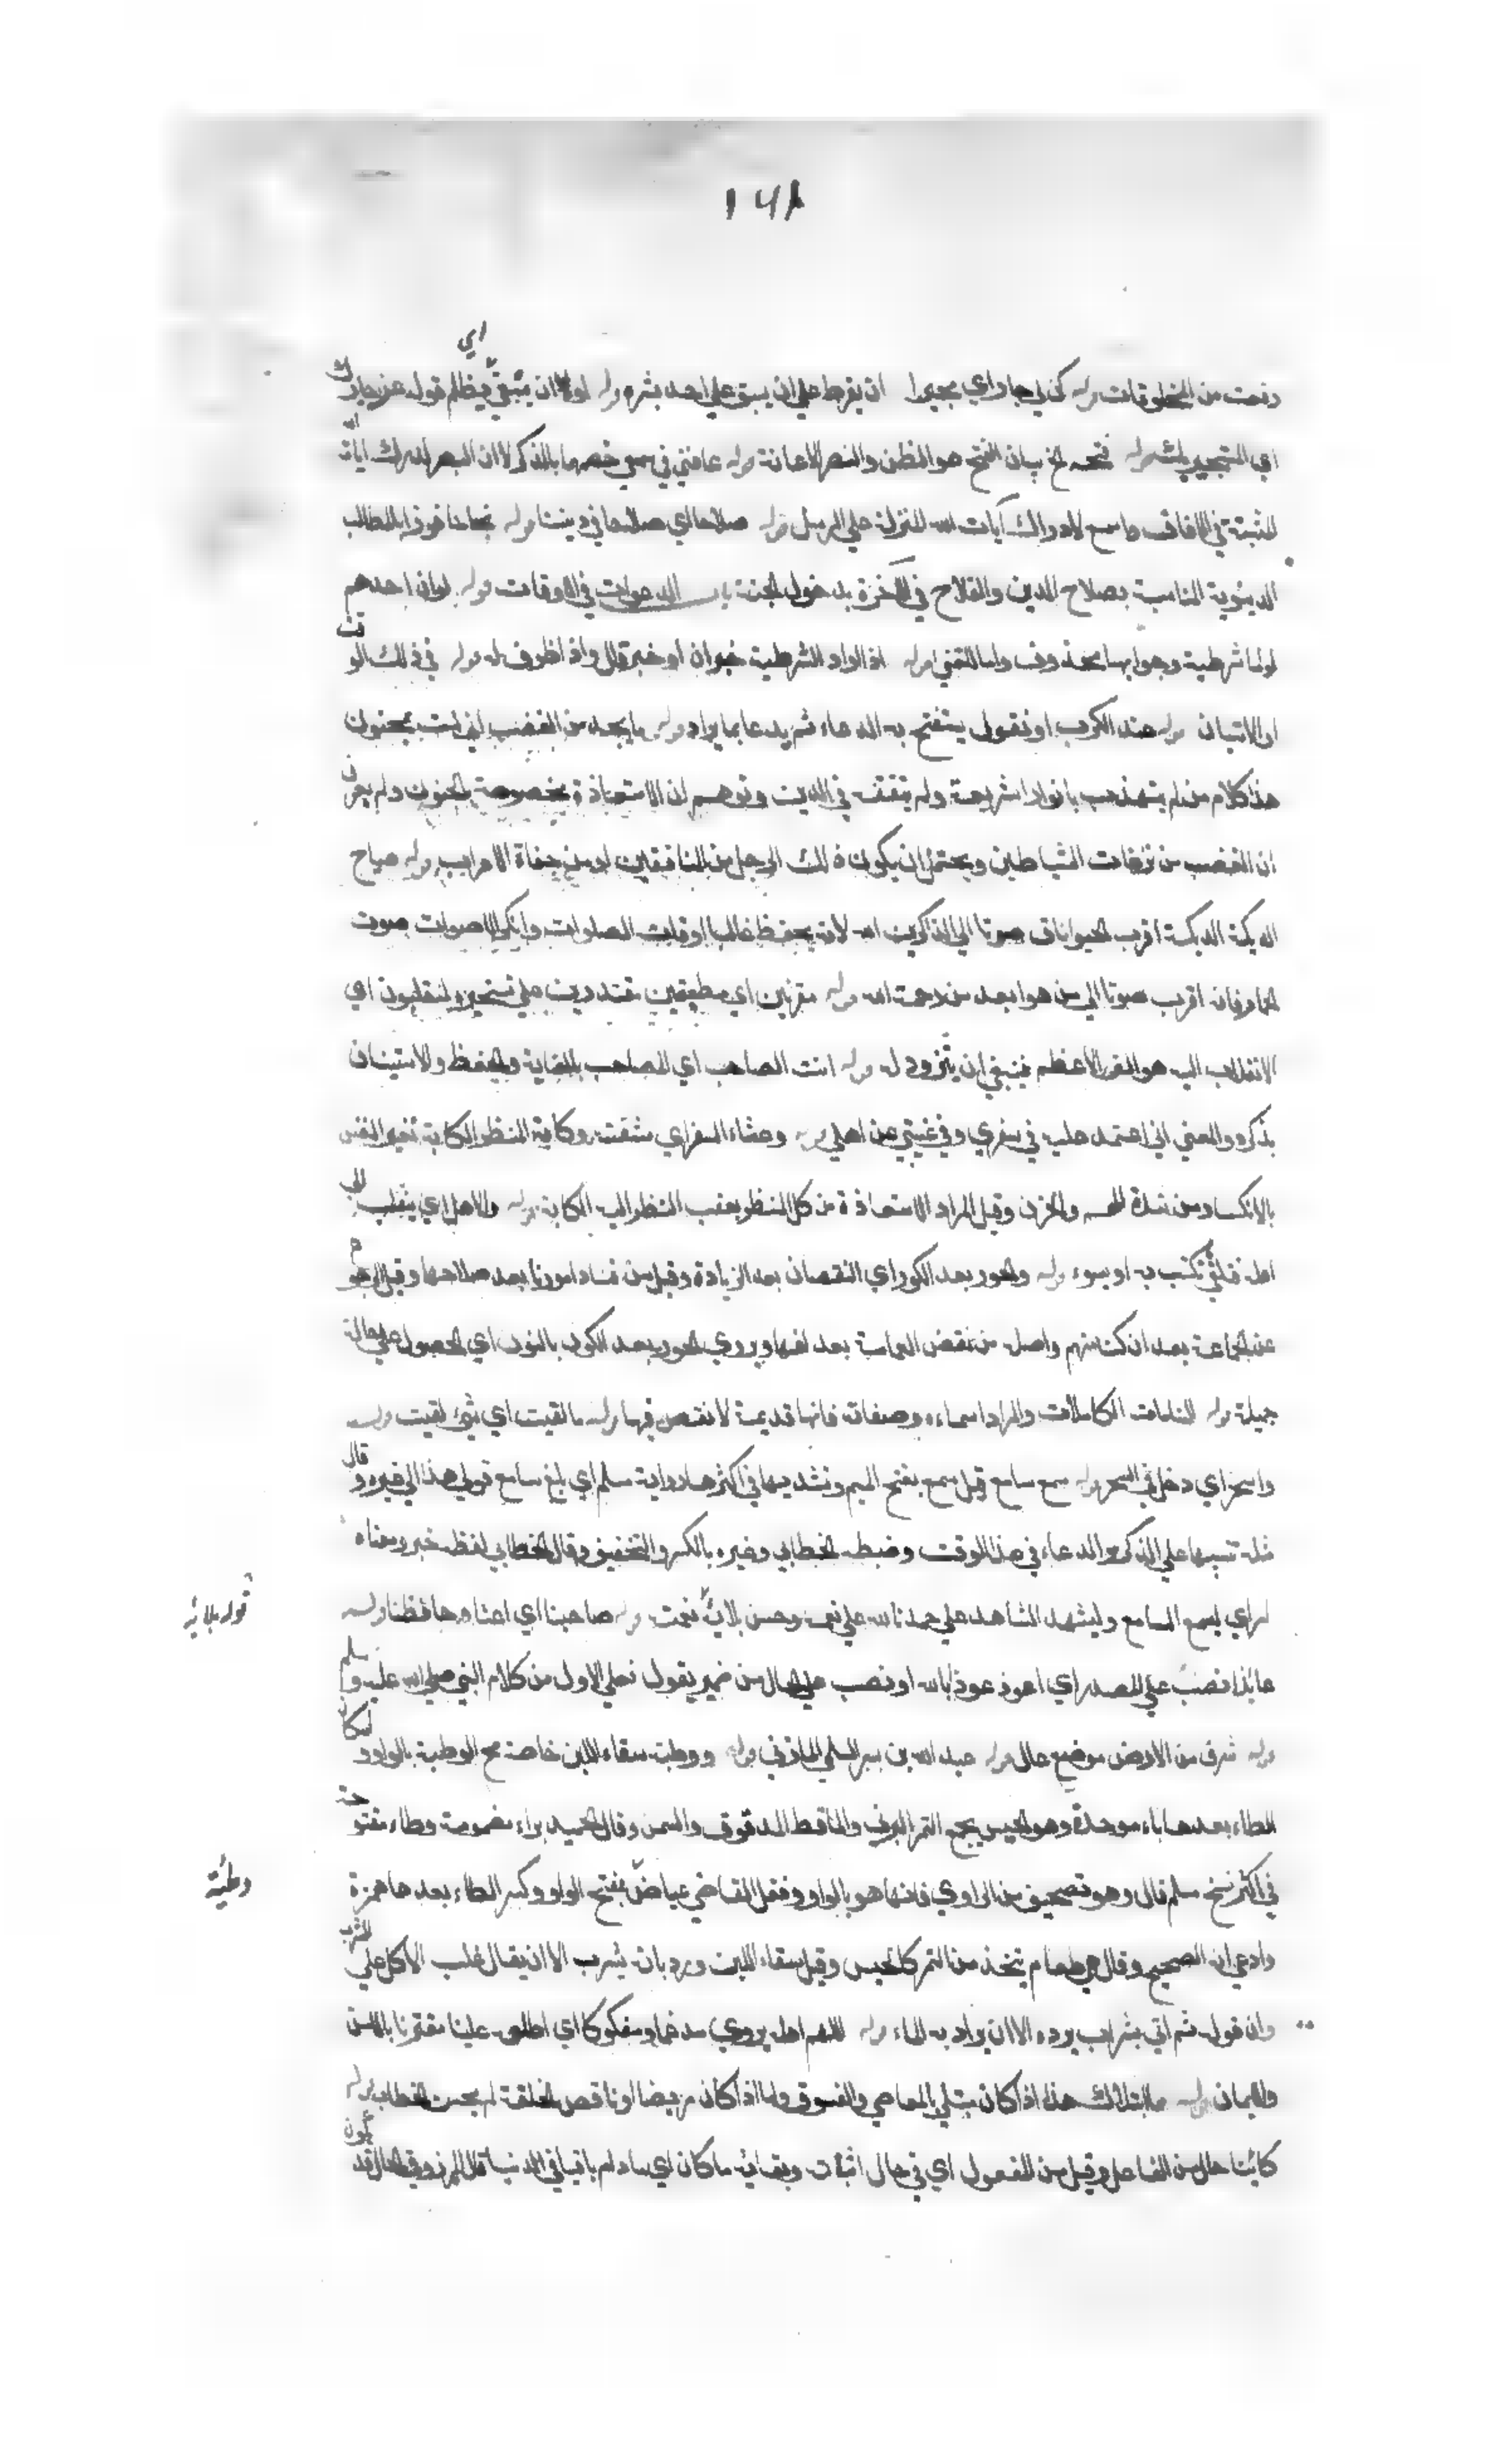 ١٦٨
اي
دفعت من المخلوقات قوله كن لي جارا اي مجيرا ان يفرط علي اي يسبق علي احد بشره قوله او ان يبغي يظلم قوله عز جارك
اي المستجير بك قوله فتحه الخ بيان الفتح هو الظفر والنصر الاعانة قوله عافني في سمعي خصهما بالذكر لان البصر لدرك ايات الله
المثبتة في الافاق والسمع لادراك آيات الله المنزلة علي الرسل قوله صلاحا اي صلاحا في ديننا قوله نجاحا فوزا بالمطالب
الدنيوية المناسبة بصلاح الدين والفلاح في الآخرة بدخول الجنة باب الدعوات في الاوقات قوله لو ان احدهم
لو اما شرطية وجوابها محذوف واما للتمني قوله اذا اراد الشرطية خبر ان او خبر قال واذا ظرف له قوله في ذلك الوقت
او الاتيان قوله عند الكرب او نقول يستفتح به الدعاء ثم يدعا بما يراد قوله ما يجد من الغضب اني لست بمجنون
هذا كلام من لم يتهذب بانوار الشريعة ولم يتفقه في الدين وتوهم ان الاستعاذة مخصوصة بالجنون ولم يعرف
ان الغضب من نزغات الشياطين ويحتمل ان يكون ذلك الرجل من المنافقين او من جفاة الاعراب قوله صياح
الديكة الديكة اقرب الحيوانات صوتا الي الذاكرين الله لانه يحفظ غالبا اوقات الصلوات وانكر الاصوات صوت
الحمار فانه اقرب صوتا الي من هو ابعد من رحمة الله قوله مقرنين اي مطيقين مقتدرين علي تسخيره لمنقلبون اي
الانقلاب اليه هو السفر الاعظم فينبغي ان يتزود له قوله انت الصاحب اي المصاحب بالعناية والحفظ والاستيناس
بذكره والمعني اني اعتمد عليه في سفري وفي غيبتي عن اهلي قوله وعثاء السفر اي مشقته وكابة المنظر الكابة تغير النفس
بالانكسار من شدة الهم والحزن وقيل المراد الاستعاذة من كل منظر يعقب النظر اليه الكابة قوله والاهل اي ينقلب الي
اهله فيلقي يكتب به او بسوء قوله والحور بعد الكور اي النقصان بعد الزيادة وقيل من فساد امورنا بعد صلاحها وقيل الرجوع
عن الجماعة بعد ان كنا منهم واصله من نقض العمامة بعد لفها ويروي الحور بعد الكون بالنون اي الحصول علي حالة
جميلة قوله التامات الكاملات والمراد اسماءه وصفاته فانها قديمة لا نقص فيها قوله ما لقيت اي شئ لقيت قوله
واسحر اي دخل في السحر قوله سمع سامع قيل سمع بفتح الميم وتشديدها في اكثرها رواية مسلم اي بلغ سامع قولي هذا الي غيره وقال
مثله تنبيها علي الذكر والدعاء في هذا الوقت وضبطه الخطابي وغيره بالكسر والتخفيف وقال الخطابي لفظه خبر ومعناه
امر اي ليسمع السامع وليشهد الشاهد علي حمدنا لله علي نعمه وحسن بلائه نعمته قوله صاحبنا اي اعنا وحافظنا قوله
قوله بلائه
عائذا نصب علي المصدر اي اعوذ عوذا بالله او نصب علي الحال من ضمير يقول فعلي الاول من كلام النبي صلي الله عليه وسلم
قوله شرف من الارض موضع عال قوله عبد الله بن بسر السلمي المازني قوله ووطبة سقاء اللبن خاصة مع الوطبة بالواو واسكان
الطاء بعدها باء موحدة وهو الحيس يجمع التمر البرني والاقط المدقوق والسمن وقال الحميد براء مضمومة وطاء مفتوحة
في اكثر نسخ مسلم قال وهو تصحيف من الراوي فانها هو بالواو ونقل القاضي عياض بفتح الواو وكسر الطاء بعدها همزة
وطئة
وادعي انه الصحيح وقال هي طعام يتخذ من التمر كالحيس وقيل سقاء اللبن ورد بانه يشرب الا ان يقال غلب الاكل علي الشرب
وان قوله ثم اتي بشراب يرده الا ان يراد به الماء قوله اللهم اهله يروي مدغما ومفكوكا اي اطلعه علينا مقترنا بالامن
والايمان قوله مما ابتلاك هذا اذا كان مبتلي بالمعاصي والفسوق واما اذا كان مريضا او ناقص الخلقة لم يحسن الخطاب قوله
كائنا حال من الفاعل وقيل من المفعول اي في حال اثباته وبقائه ما كان اي ما دام باقيا في الدنيا قال المرزوقي الحال قد يكون